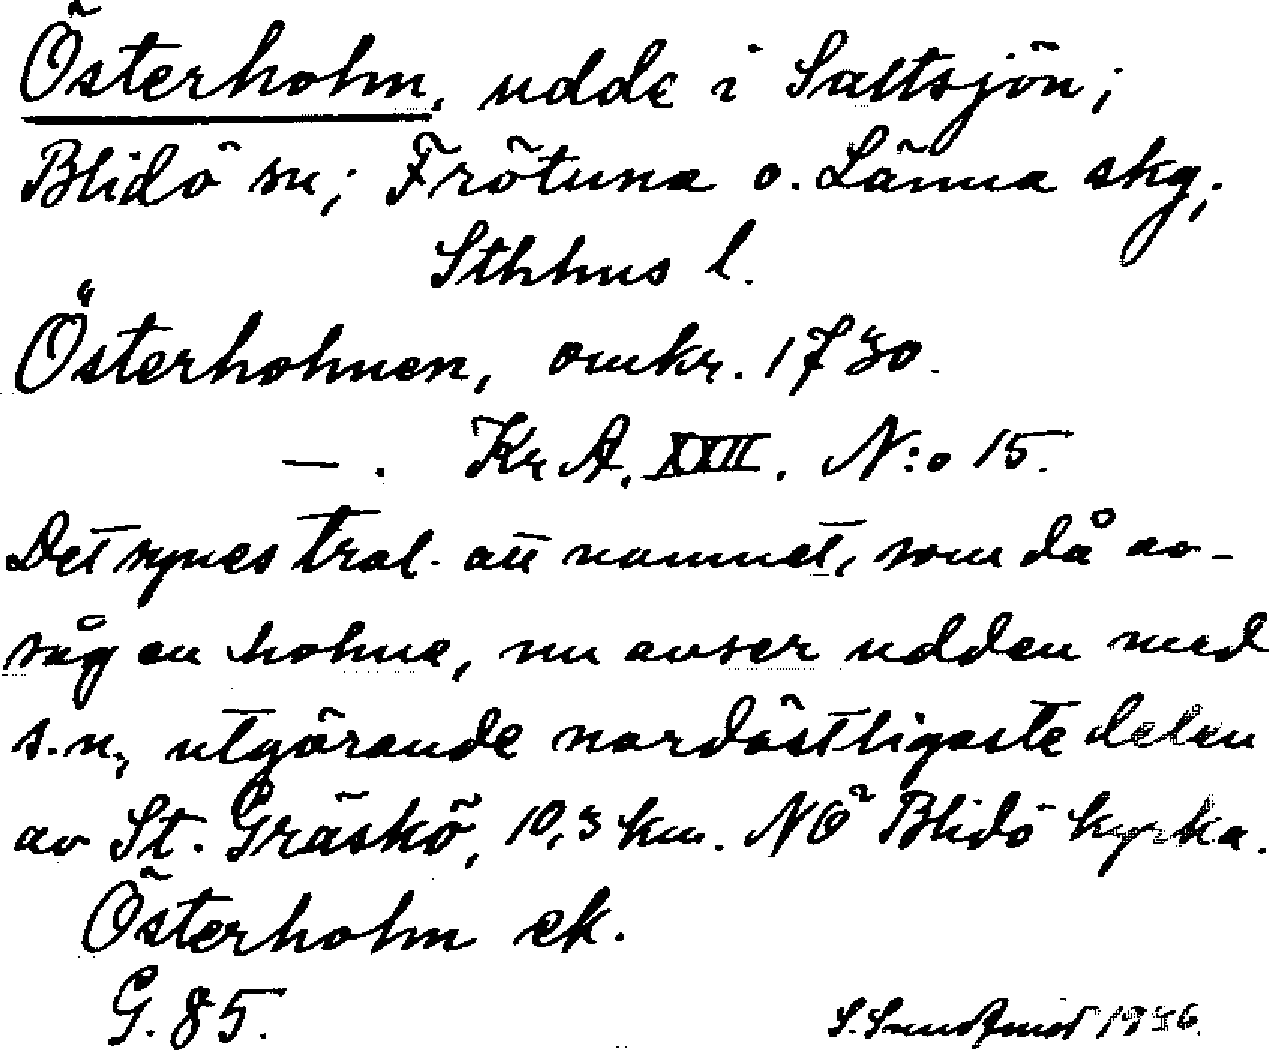 Österholm, udde i Saltsjön;
Blidö sn; Frötuna o. Länna skg,
Sthlms l.
Österholmen, omkr. 1730.
—. Kr A. XXII. N:o 15.
Det synes tral. att namnet, som då av-
såg en holme, nu avser udden med
s.n., utgörande nordöstligaste delen
av St. Gräskö, 10,3 km. NÖ Blidö kyrka.
Österholm ek.
G. 85.
S. Sundqvist 1936